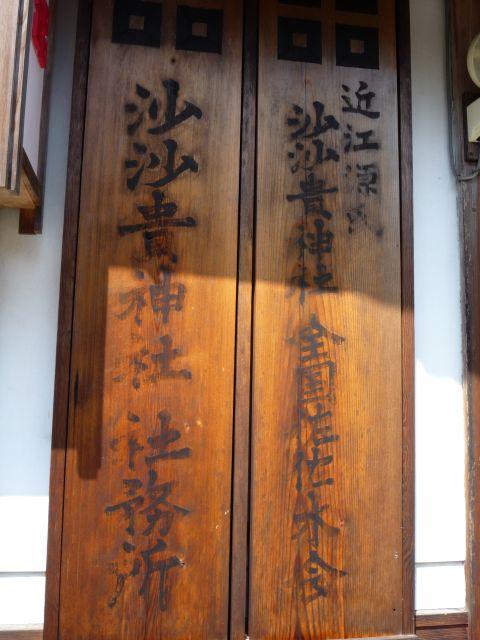 近江源氏
沙沙貴神社 全国佐佐木会
沙沙貴神社 社務所